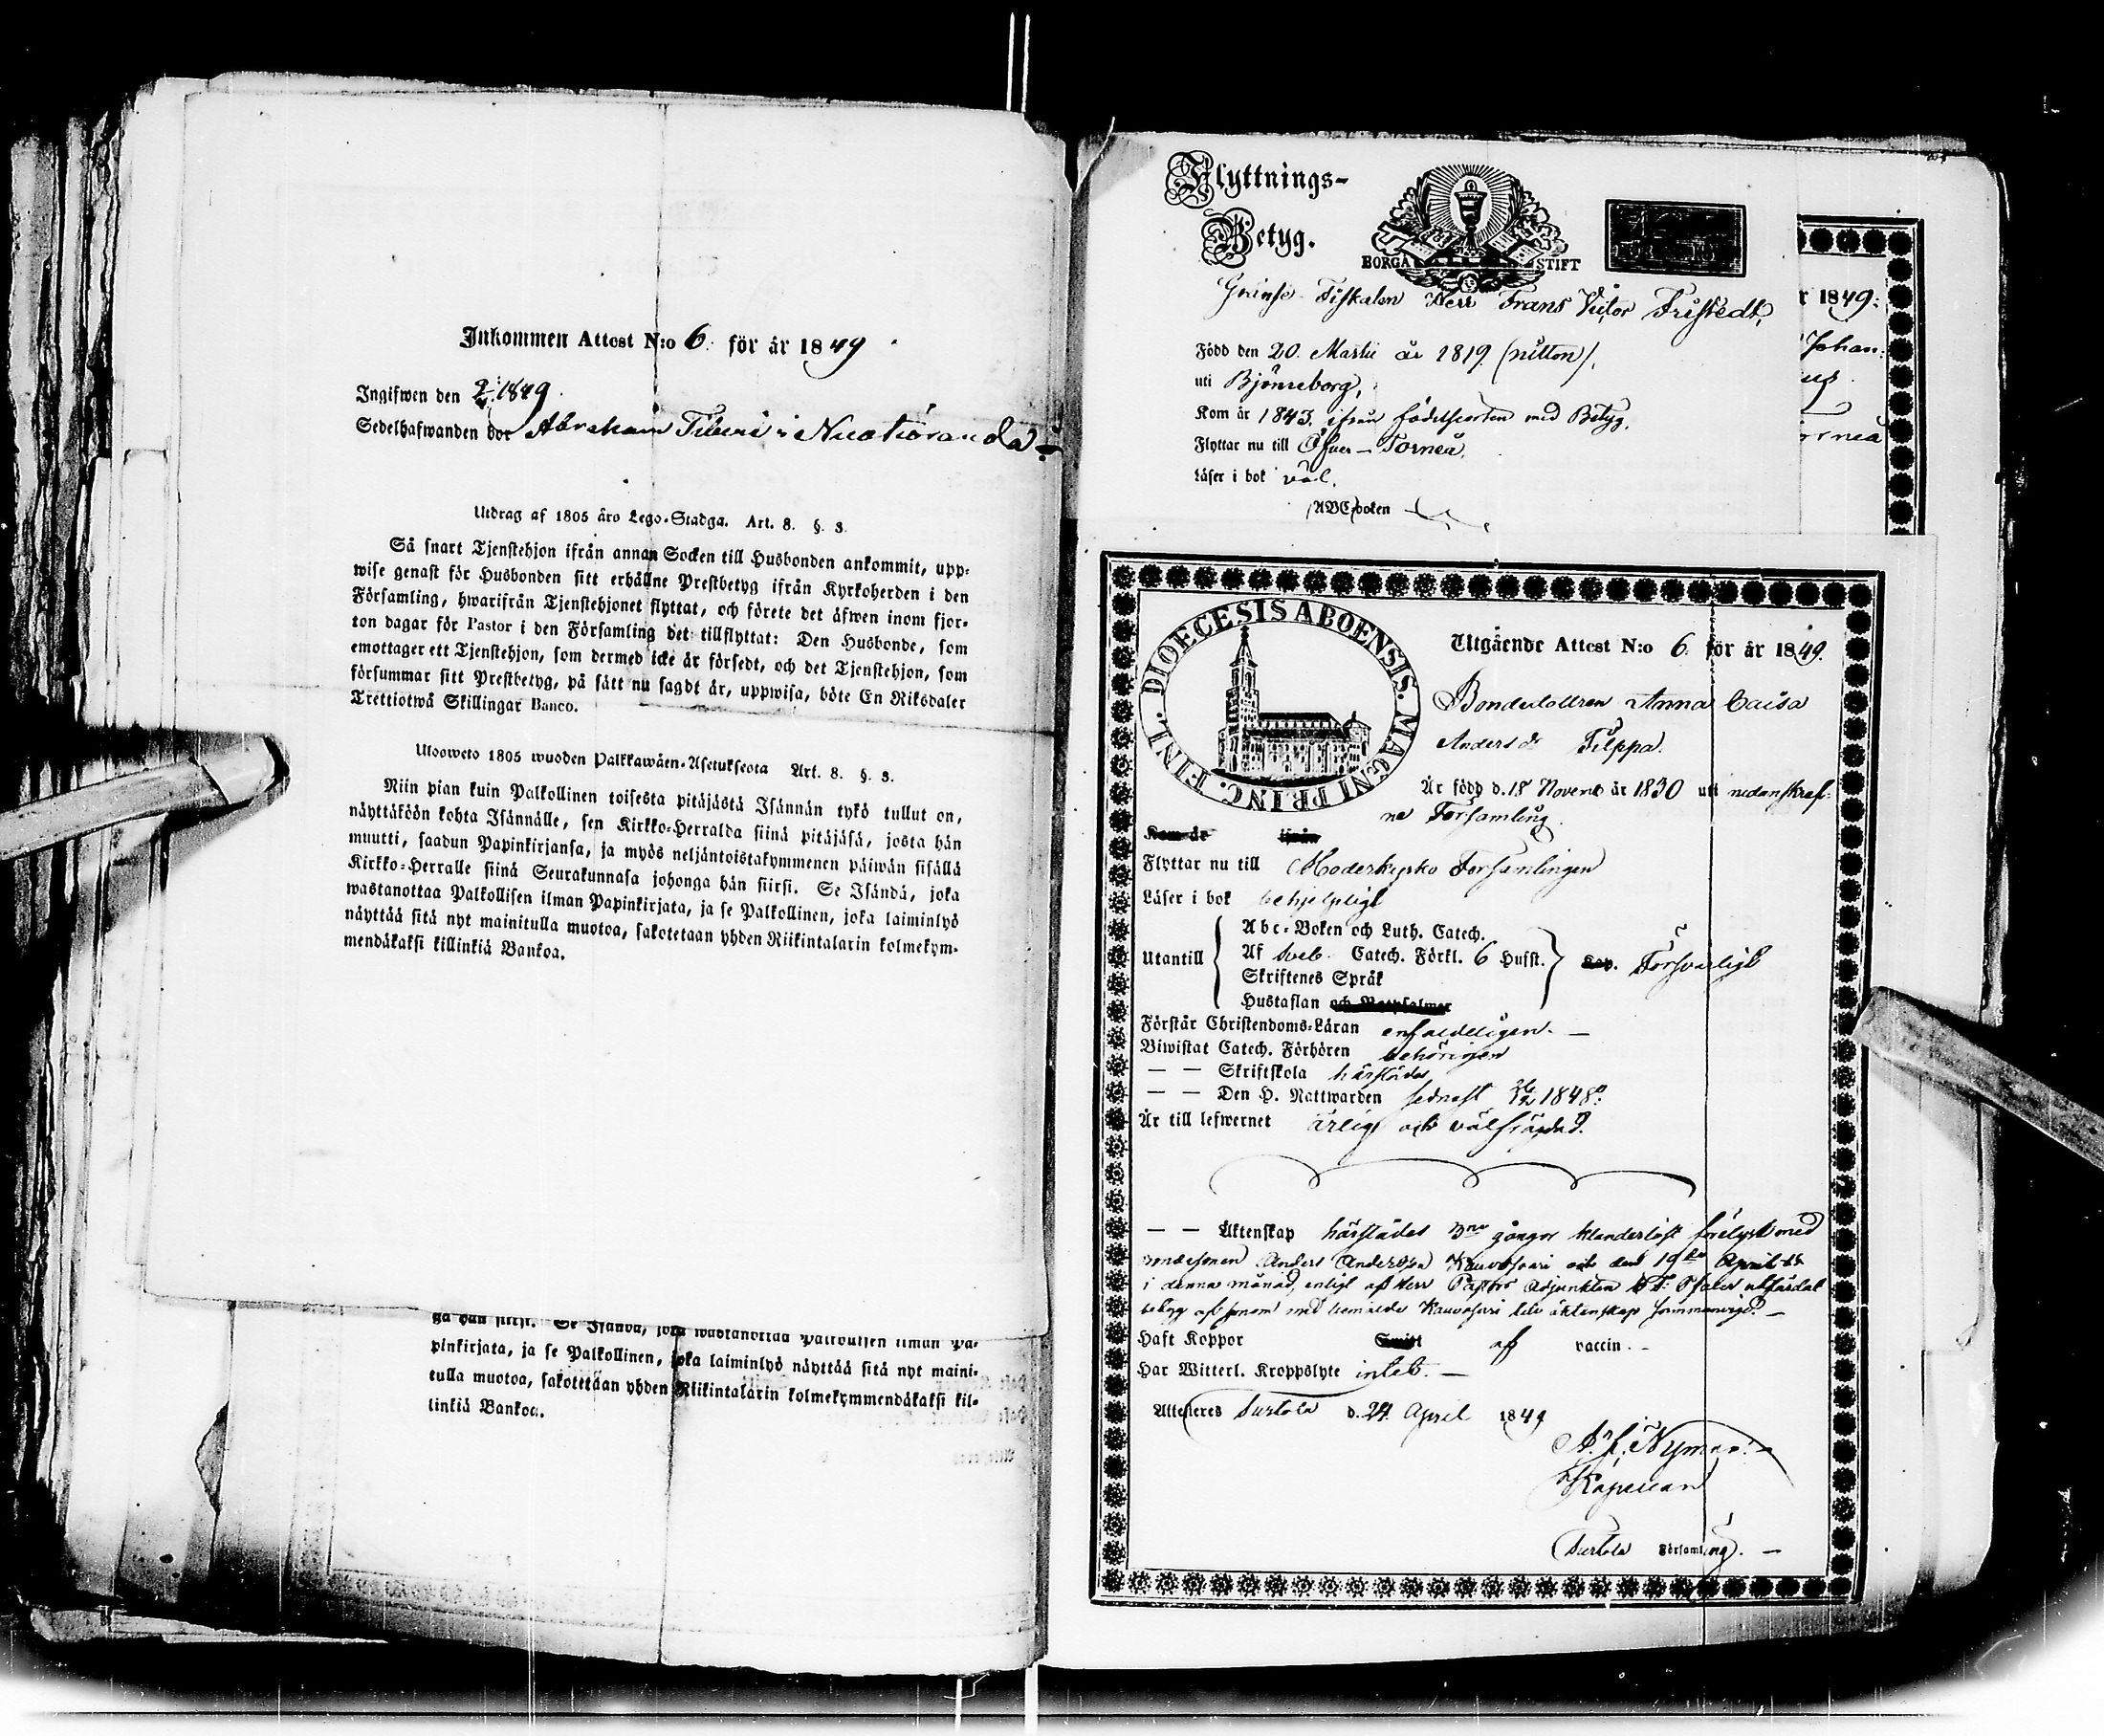 Inkommen Attest N:o 6. för år 1849
Ingifwen den 1849.
Sedelhafwanden bor Abraham i
Utdrag af 1805 års Lego-Stadga. Art. 8. §. 3.
Så snart Tjenstehjon ifrån annan Socken till Husbonden ankommit, upp-
wise genast för Husbonden sitt erhållne Prestbetyg ifrån Kyrkoherden i den
Församling, hwarifrån Tjenstehjonet flyttat, och förete det äfwen inom fjor-
ton dagar för Pastor i den Församling det tillflyttat: Den Husbonde, som
emottager ett Tjenstehjon, som dermed icke är försedt, och det Tjenstehjon, som
försummar sitt Prestbetyg, på sätt nu sagdt är, uppwisa, böte En Riksdaler
Trettiotwå Skillingar Banco.
Ulosweto 1805 wuoden Palkkawäen-Asetuksesta Art. 8. §. 3.
Niin pian kuin Palkollinen toisesta pitäjästä Isännän tykö tullut on,
näyttäköön kohta Isännälle, sen Kirkko-Herralda siinä pitäjäsä, josta hän
muutti, saadun Papinkirjansa, ja myös neljäntoistakymmenen päiwän sisällä
Kirkko-Herralle siinä Seurakunnasa johonga hän siirsi. Se Isändä, joka
wastanottaa Palkollisen ilman Papinkirjata, ja se Palkollinen, joka laiminlyö
näyttää sitä nyt mainitulla muotoa, sakotetaan yhden Riikintalarin kolmekym-
mendäkaksi killinkiä Bankoa.
ga hän siirsi. Se Isändä, joka wastanottaa Palkollisen ilman Pa-
pinkirjata, ja se Palkollinen, joka laiminlyö näyttää sitä nyt maini-
tulla muotoa, sakotetaan yhden Riikintalarin kolmekymmendäkaksi kil-
linkiä Bankoa.
Flyttnings-
Betyg.
BORGÅ STIFT
Gränse Fiskalen Herr Frans Victor Fristedt,
Född den 20. Martii år 1819. (nitton),
uti Björneborg,
Kom år 1843. ifrån födelseorten med Betyg.
Flyttar nu till Öfver-Torneå.
Läser i bok väl.
(ABC)boken
r 1849:
Johan:
rneå
DIOECESIS ABOENSIS. MAGNI PRINC. FINL.
Utgående Attest N:o 6 för år 1849.
Bondedottren Anna Caisa
Anders dr Filppa.
Är född d. 18 Novemb år 1830 uti nedanskref-
ne Församling.
Kom år ifrån
Flyttar nu till Moderkyrko Församlingen
Läser i bok behjelpligt
Utantill
Abc-Boken och Luth. Catech.
Af Sveb. Catech. Förkl. 6 Hufst.
Skriftenes Språk
Hustaflan och Botpsalmer
Försvarligt
Förstår Christendoms-Läran enfaldeligen. —
Biwistat Catech. Förhören behörigen
— — Skriftskola härstädes
— — Den H. Nattwarden sednast 1848
Är till lefwernet ärlig och välfrägdad.
— — Äktenskap härstädes 3ne gånger klanderlöst förelyst med
Anders Andersson och den 19de April
i denna månad, enligt af Herr Pastors Adjunkten utfärdat
betyg
Haft Koppor af vaccin. —
Har Witterl. Kroppslyte intet. —
Attesteres Turtola d. 24. April 1849
Nyman
Kapellan
Turtola Församling. —